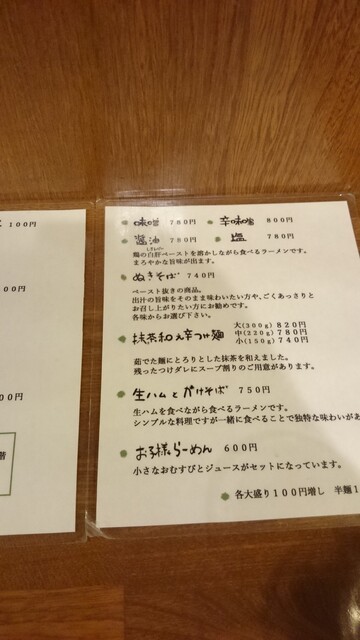 100円
00円
00円
階
味噌 780円 辛味噌 800円
醤油 780円 塩 780円
鶏の白肝ペーストを溶かしながら食べるラーメンです。
まろやかな旨味が出ます。
ぬきそば 740円
ペースト抜きの商品。
出汁の旨味をそのまま味わいたい方や、ごくあっさりと
お召し上がりたい方にお勧めです。
各味からお選び下さい。
抹茶和え辛つけ麺 大(300g)820円
中(220g)780円
小(150g)740円
茹でた麺にとろりとした抹茶を和えました。
残ったつけダレにスープ割りのご用意があります。
生ハムとかけそば 750円
生ハムを食べながら食べるラーメンです。
シンプルな料理ですが一緒に食べることで独特な味わいがあ
お子様らーめん 600円
小さなおむすびとジュースがセットになっています。
各大盛り100円増し 半麺1